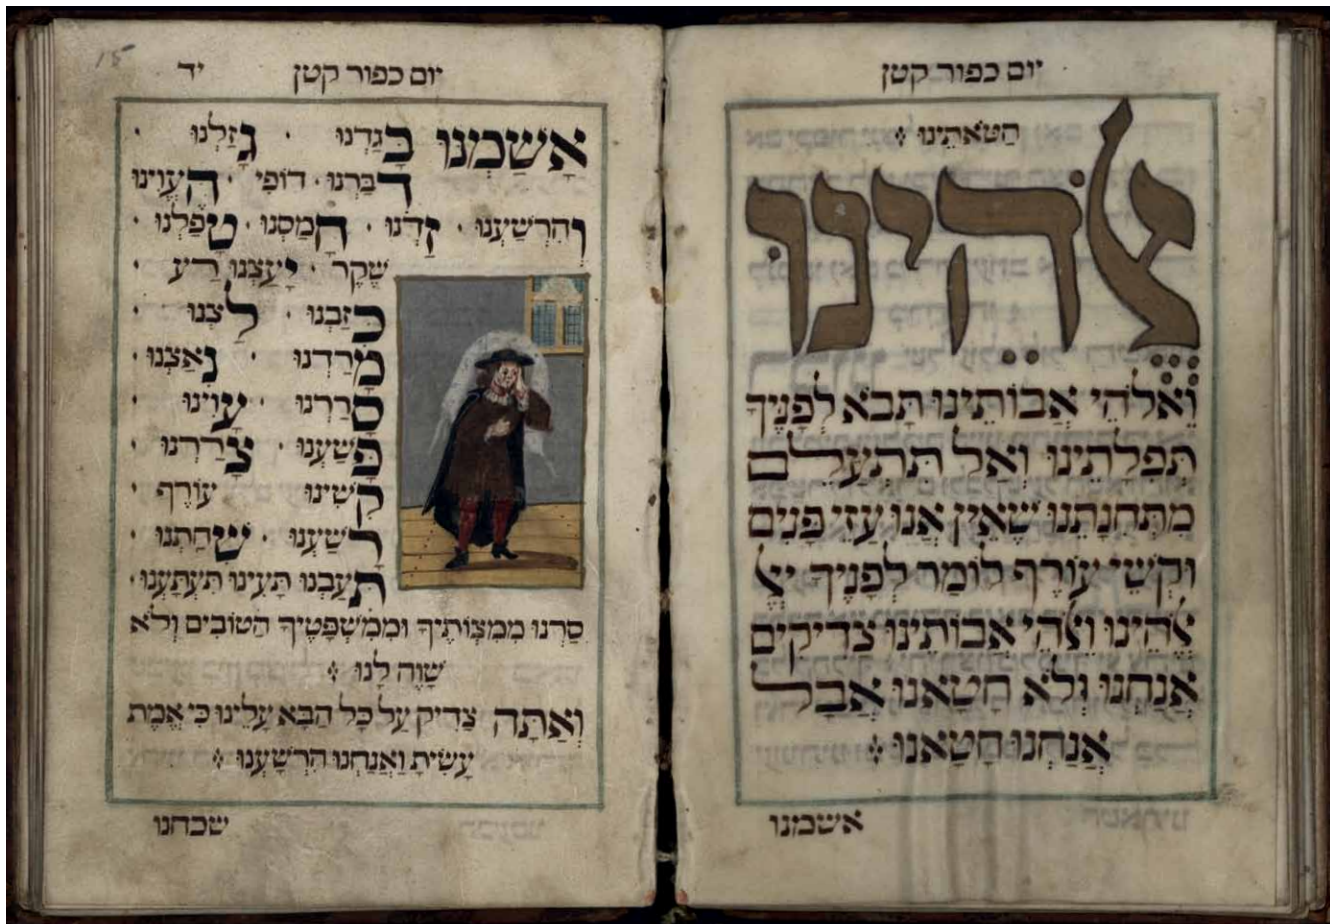 יום כפור קטן
חַטֹּאתֵינוּ
אֱלֹהֵינוּ
וֵאלֹהֵי אֲבוֹתֵינוּ תָּבֹא לְפָנֶיךָ
תְּפִלָּתֵינוּ וְאַל תִּתְעַלֵּם
מִתְּחִנָּתֵנוּ שֶׁאֵין אֲנוּ עַזֵּי פָּנִים
וּקְשֵׁי עוֹרֶף לוֹמַר לְפָנֶיךָ יְיָ
אֱלֹהֵינוּ וֵאלֹהֵי אֲבוֹתֵינוּ צַדִּיקִים
אֲנַחְנוּ וְלֹא חָטָאנוּ אֲבָל
אֲנַחְנוּ חָטָאנוּ
אשמנו
15
יום כפור קטן יד
אָשַׁמְנוּ בָּגַדְנוּ · גָּזַלְנוּ ·
דִּבַּרְנוּ · דוֹפִי · הֶעֱוִינוּ
וְהִרְשַׁעְנוּ · זַדְנוּ · חָמַסְנוּ · טָפַלְנוּ ·
שֶׁקֶר · יָעַצְנוּ רַע ·
כִּזַּבְנוּ · לַצְנוּ ·
מָרַדְנוּ · נִאַצְנוּ ·
סָרַרְנוּ · עָוִינוּ ·
פָּשַׁעְנוּ · צָרַרְנוּ ·
קִשִּׁינוּ עוֹרֶף ·
רָשַׁעְנוּ · שִׁחַתְנוּ ·
תִּעַבְנוּ תָּעִינוּ תִּעְתָּעְנוּ ·
סַרְנוּ מִמִּצְוֹתֶיךָ וּמִמִּשְׁפָּטֶיךָ הַטּוֹבִים וְלֹא
שָׁוֶה לָנוּ
וְאַתָּה צַדִּיק עַל כָּל הַבָּא עָלֵינוּ כִּי אֱמֶת
עָשִׂיתָ וַאֲנַחְנוּ הִרְשָׁעְנוּ
שכחנו